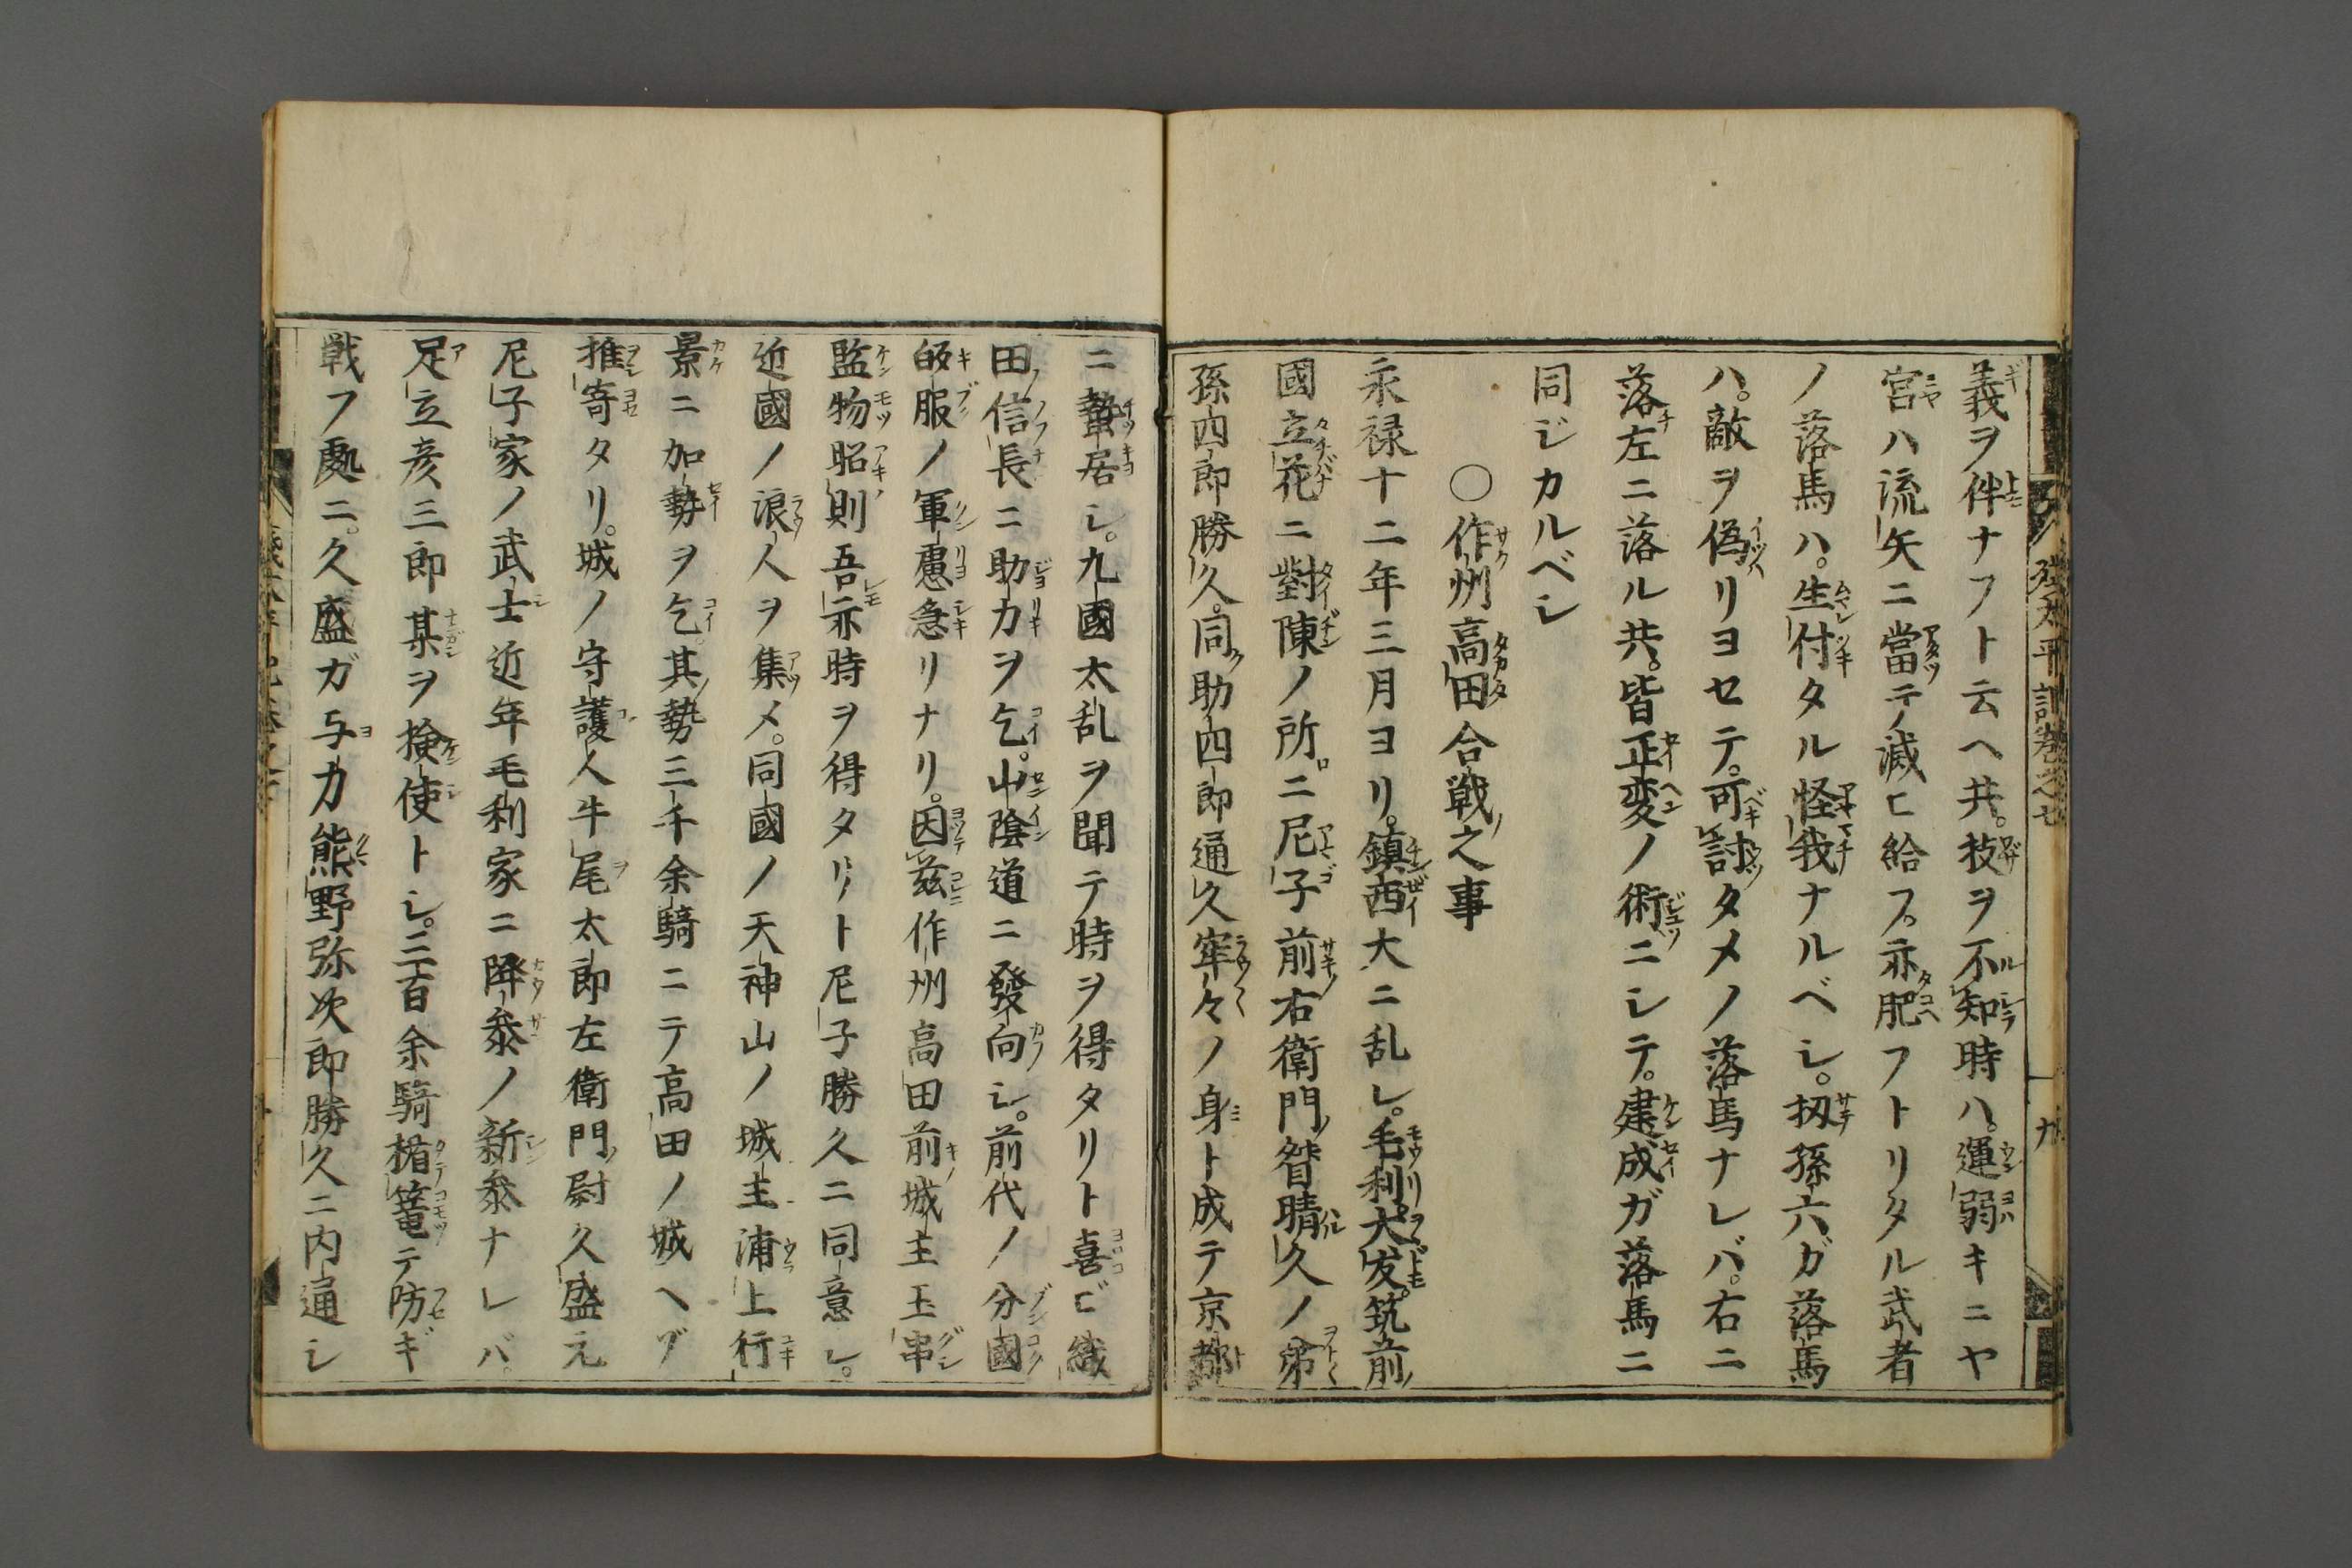 義ヲ伴ナフト云ヘ共。技ヲ不知時ハ。運弱キニヤ
宮ハ流矢ニ當テ滅ヒ給フ。亦肥フトリタル武者
ノ落馬ハ。生付タル怪我ナルベシ。扨孫六ガ落馬
ハ。敵ヲ偽リヨセテ。可討タメノ落馬ナレバ。右ニ
落左ニ落ル共。皆正変ノ術ニシテ。建成ガ落馬ニ
同ジカルベシ
○作州高田合戦之事
永禄十二年三月ヨリ。鎮西大ニ乱レ。毛利。大友。筑前
國立花ニ對陳ノ所。ニ尼子前右衛門督晴久ノ弟
孫四郎勝久。同助四郎通久窂々ノ身ト成テ京都
ニ蟄居シ。九國太乱ヲ聞テ時ヲ得タリト喜ビ織
田信長ニ助力ヲ乞。山陰道ニ發向シ。前代ノ分國
皈服ノ軍慮急リナリ。因茲作州高田前城主玉串
監物昭則吾亦時ヲ得タリト尼子勝久ニ同意シ。
近國ノ浪人ヲ集メ。同國ノ天神山ノ城主浦上行
景ニ加勢ヲ乞。其勢三千余騎ニテ高田ノ城ヘゾ
推寄タリ。城ノ守護人牛尾太郎左衛門尉久盛元
尼子家ノ武士近年毛利家ニ降参ノ新参ナレバ。
足立彦三郎某ヲ検使トシ。二百余騎楯篭テ防ギ
戦フ處ニ。久盛ガ与力熊野弥次郎勝久ニ内通シ
残太平記巻之七
九